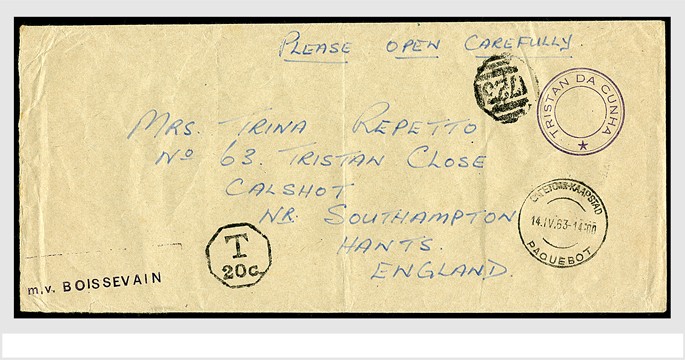 PLEASE OPEN CAREFULLY.
TRISTAN DA CUNHA
MRS. TRINA REPETTO
No 63. TRISTAN CLOSE
CALSHOT
NR. SOUTHAMPTON
HANTS.
ENGLAND.
CAPETOWN-KAAPSTAD
14.IV.63-14
PAQUEBOT
T
20c.
m.v. BOISSEVAIN